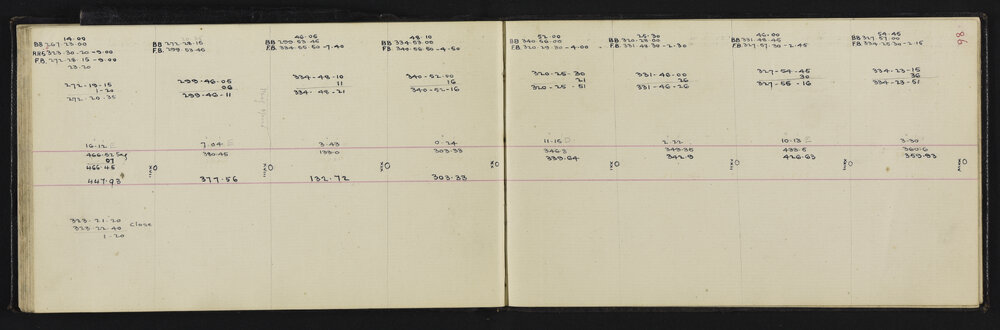 14.00
BB 267-23.00
323-30-20-9.00
F.B. 272-28-15-9.00
23.20
272-19-15
1-20
272-20-35
16-12 E
466.52
07
466.45
447.93
323-21-20
323-22-40 Close
1-20
BB 272-28-15
F.B. 299-53-45
299-46-05
06
299-46-11
7.04 E
380.45
377.56
46-05
BB 299-53-45
F.B. 334-55-50-7.40
334-48-10
11
334-48-21
3-43
133.0
132.72
48-10
BB 334-53-00
F.B. 340-56-50-4-50
340-52-00
16
340-52-16
0.24
303.33
303.33
52.00
BB 340-56-00
F.B. 320-29-30-4-00
320-25-30
21
320-25-51
11-15
346.3
339.64
25-30
BB 320-28-00
F.B. 331-48-30-2-30
331-46-00
26
331-46-26
2.22
343.35
342.9
46-00
BB 331-48-45
F.B. 327-57-30-2-45
327-54-45
30
327-55-16
10-13 E
433.5
426.63
54-45
BB 327-57-00
F.B. 334-25-30-2-15
334-23-15
36
334-23-51
3-30
360.6
359.93
98